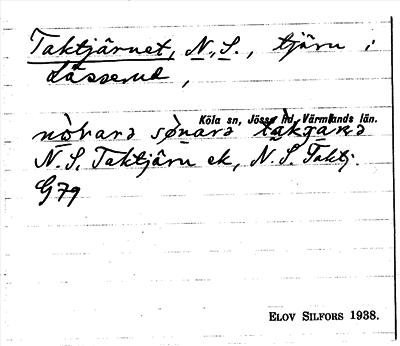 Taktjärnet, N., S., tjärn i
Lässerud,
Köla sn, Jösse hd, Värmlands län.
nò̀hara sø̀nara tàktana
N. S. Taktjärn ek, N. S. Taktj.
G79
ELOV SILFORS 1938.